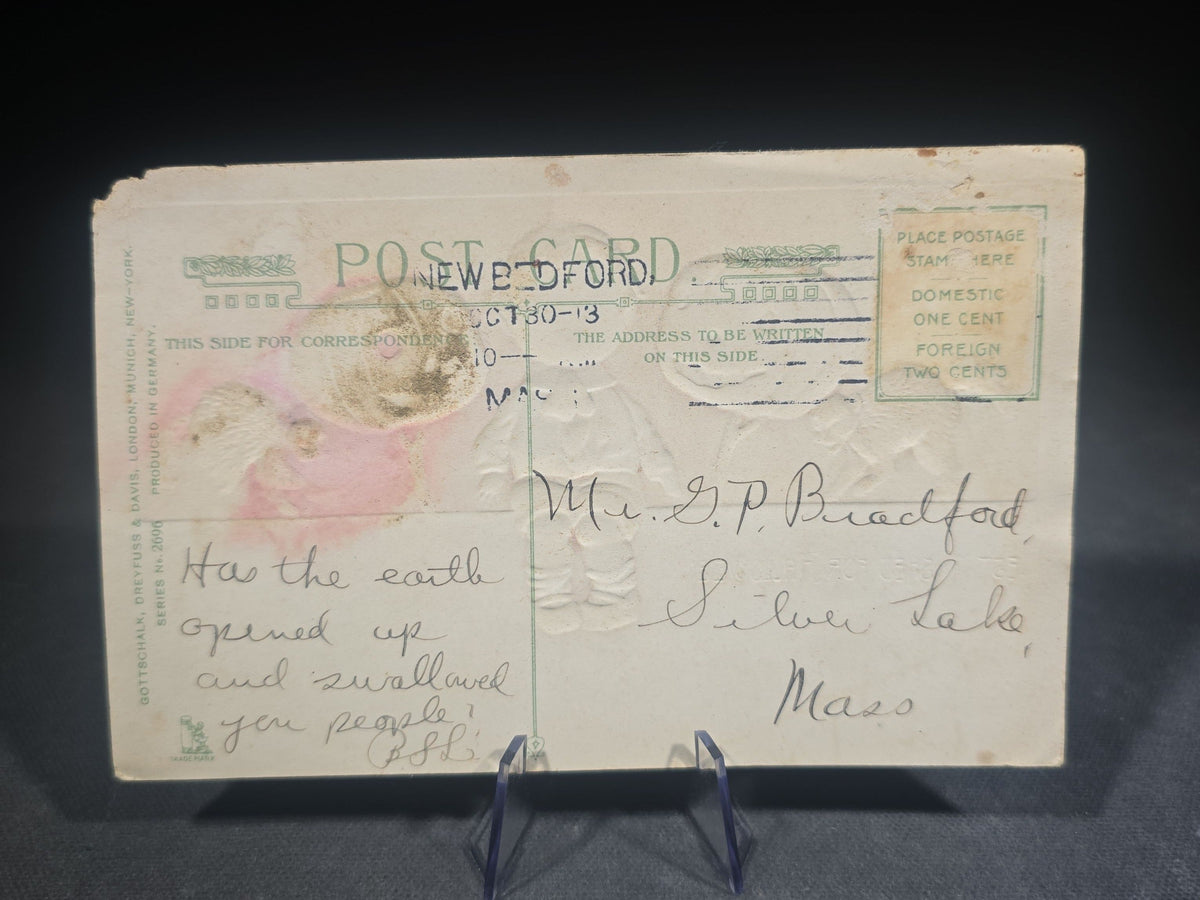 POST CARD
NEW BEDFORD,
OCT 30-13
10—
MASS
THIS SIDE FOR CORRESPONDENCE
THE ADDRESS TO BE WRITTEN
ON THIS SIDE
PLACE POSTAGE
STAMP HERE
DOMESTIC
ONE CENT
FOREIGN
TWO CENTS
GOTTSCHALK, DREYFUSS & DAVIS, LONDON, MUNICH, NEW-YORK.
SERIES No. 2696 PRODUCED IN GERMANY.
Has the earth
opened up
and swallowed
you people?
BSL
TRADE MARK
Mr. G. P. Bradford,
Silver Lake,
Mass